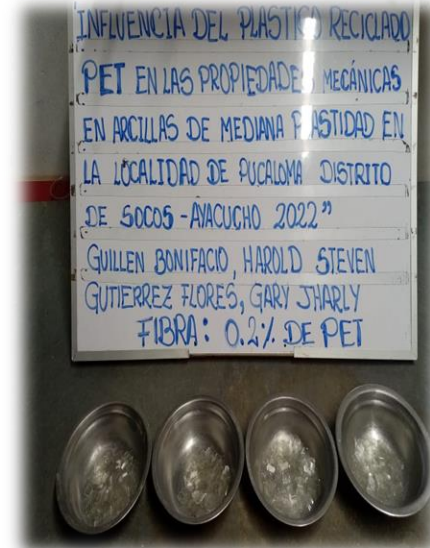 INFLUENCIA DEL PLASTICO RECICLADO
PET EN LAS PROPIEDADES MECÁNICAS
EN ARCILLAS DE MEDIANA PLASTIDAD EN
LA LOCALIDAD DE PUCALOMA DISTRITO
DE SOCOS - AYACUCHO 2022"
GUILLEN BONIFACIO, HAROLD STEVEN
GUTIERREZ FLORES, GARY JHARLY
FIBRA: 0.2% DE PET